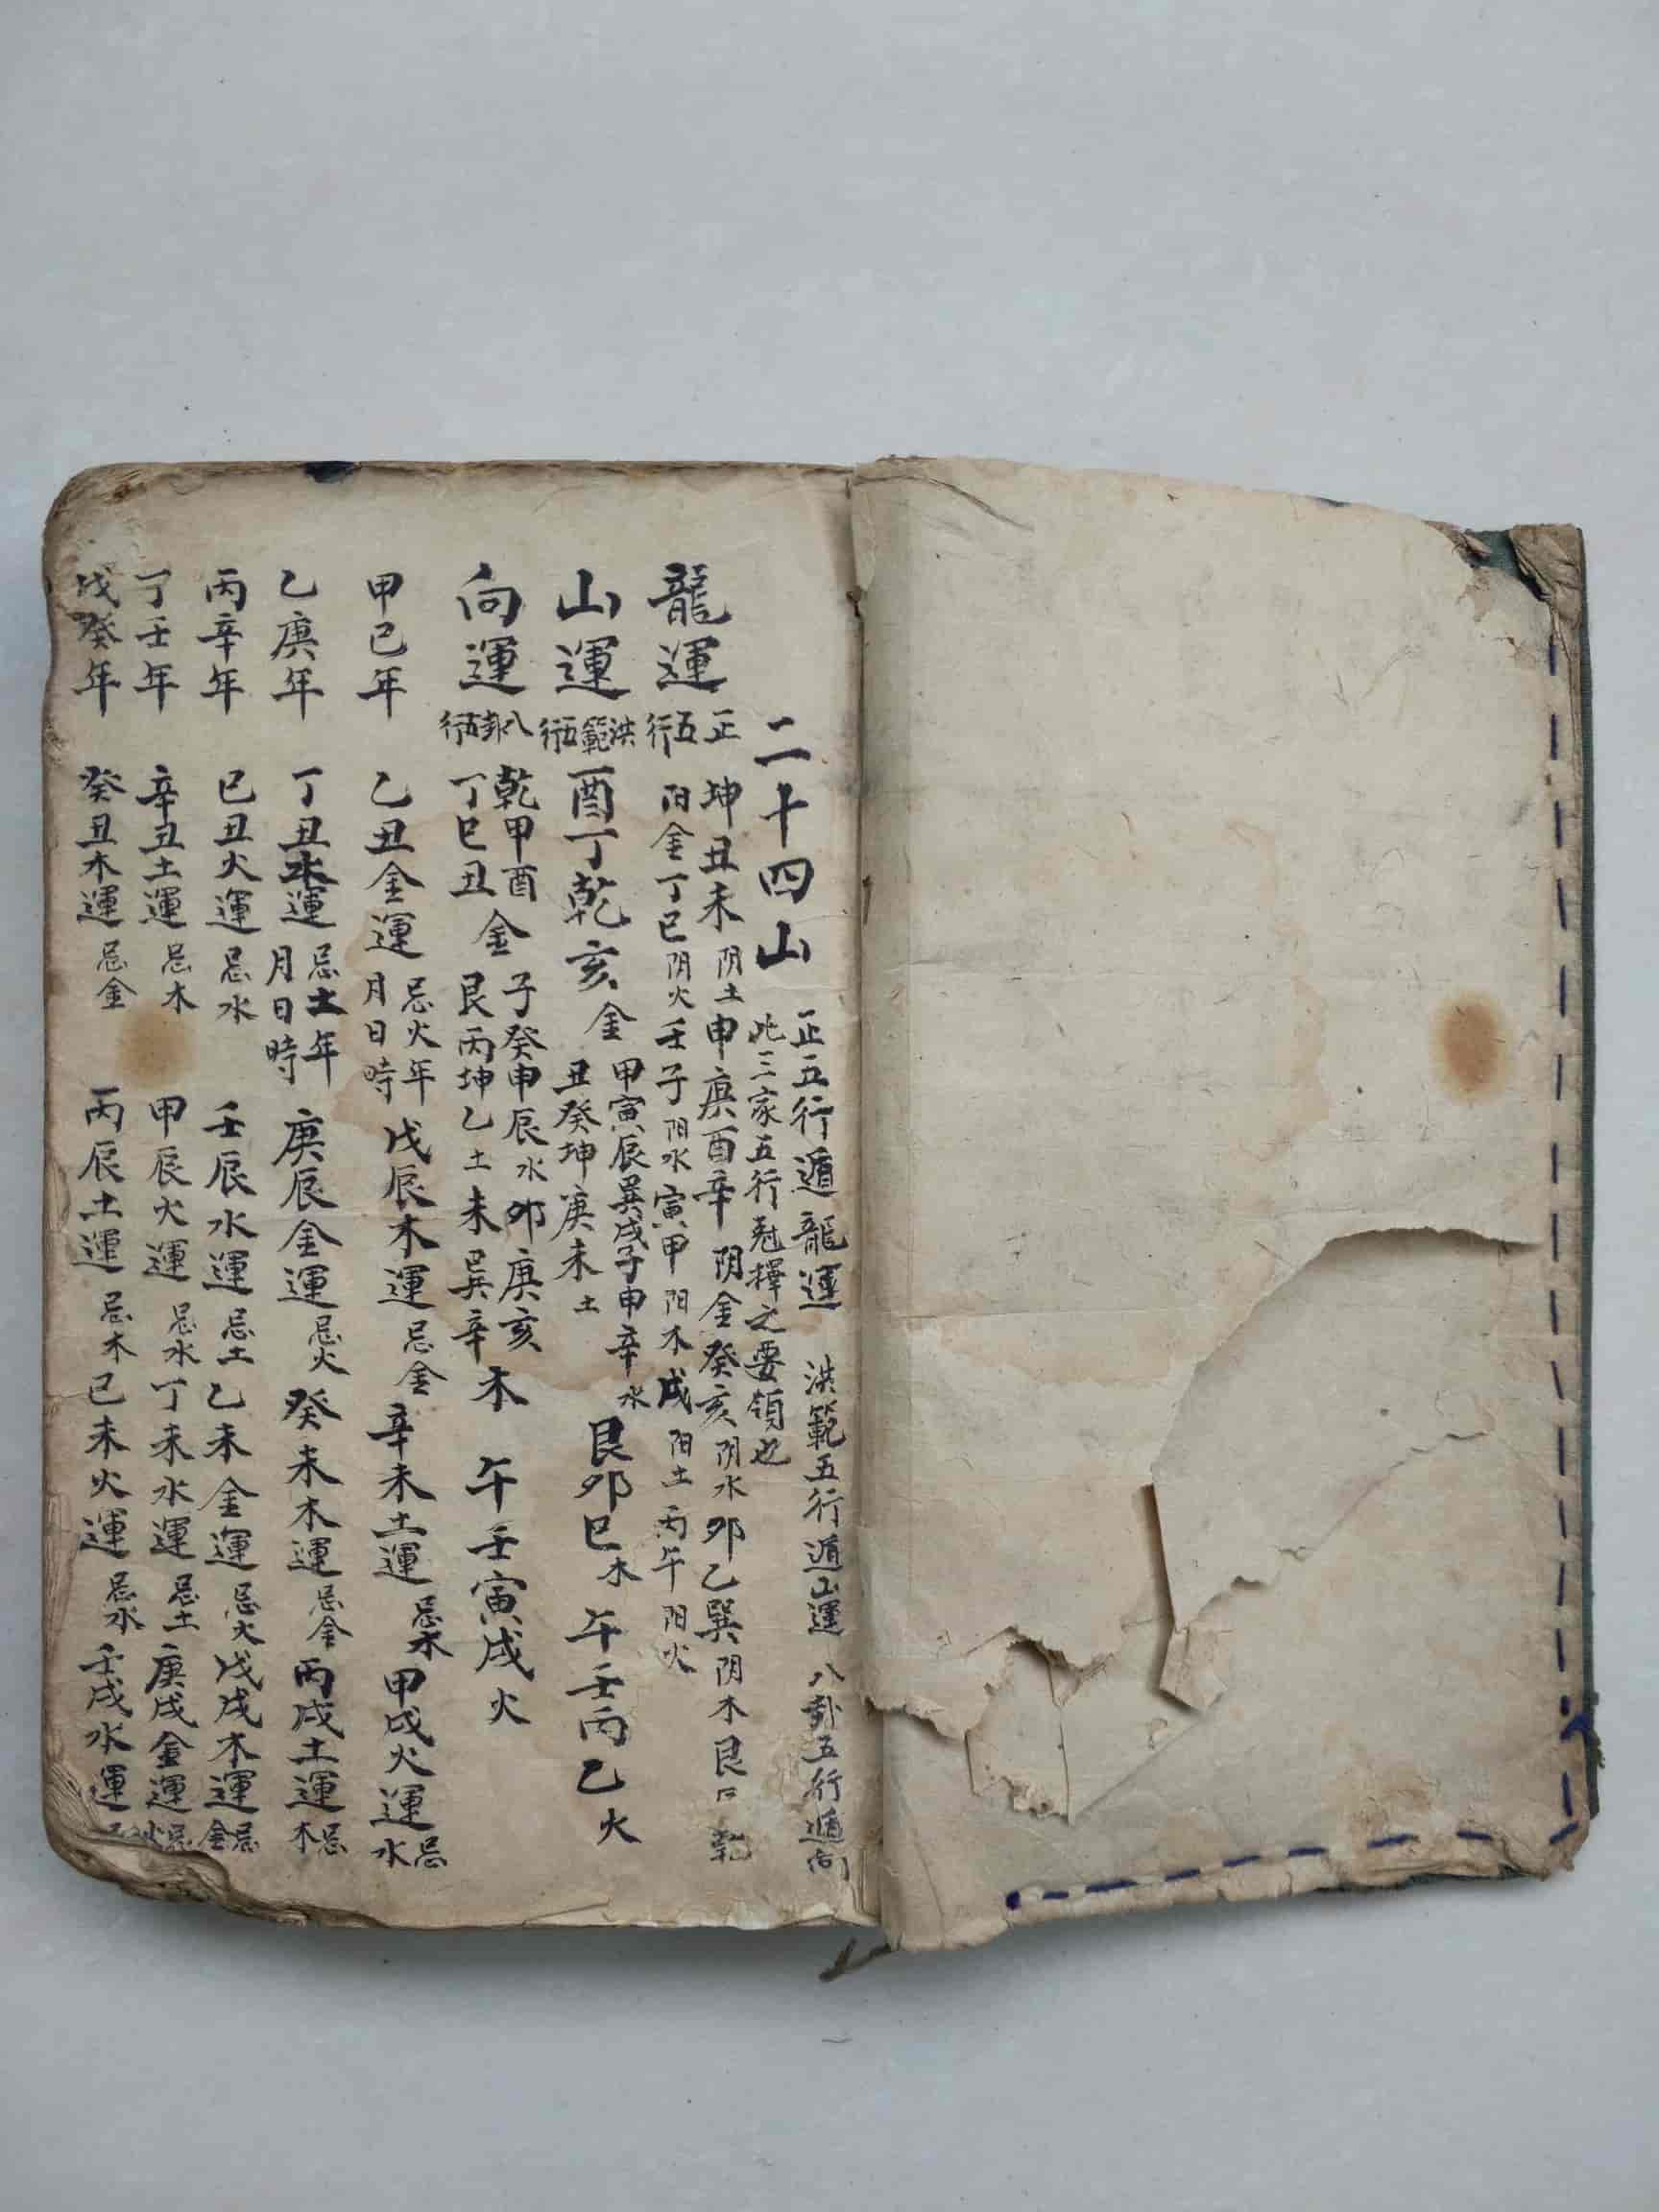 二十四山 正五行遁龍運 洪範五行遁山運 八卦五行遁向
此三家五行尅擇之要領也
龍運 正五行 坤丑未阴土申庚酉辛阴金癸亥阴水卯乙巽阴木艮 乾
阳金丁巳阴火壬子阳水寅甲阳木戌阳土丙午阳火
山運 洪範五行 酉丁乾亥金 甲寅辰巽戌子申辛水
丑癸坤庚未土 艮卯巳木 午壬丙乙火
向運 八卦五行 乾甲酉丁巳丑金 子癸申辰水卯庚亥
艮丙坤乙土未巽辛木 午壬寅戌火
甲己年 乙丑金運忌火年月日時 戊辰木運忌金 辛未土運忌木 甲戌火運忌水
乙庚年 丁丑水運忌土年月日時 庚辰金運忌火 癸未木運忌金 丙戌土運忌木
丙辛年 巳丑火運忌水 壬辰水運忌土 乙未金運忌火 戊戌木運忌金
丁壬年 辛丑土運忌木 甲辰火運忌水 丁未水運忌土 庚戌金運忌火
戊癸年 癸丑木運忌金 丙辰土運忌木 巳未火運忌水 壬戌水運